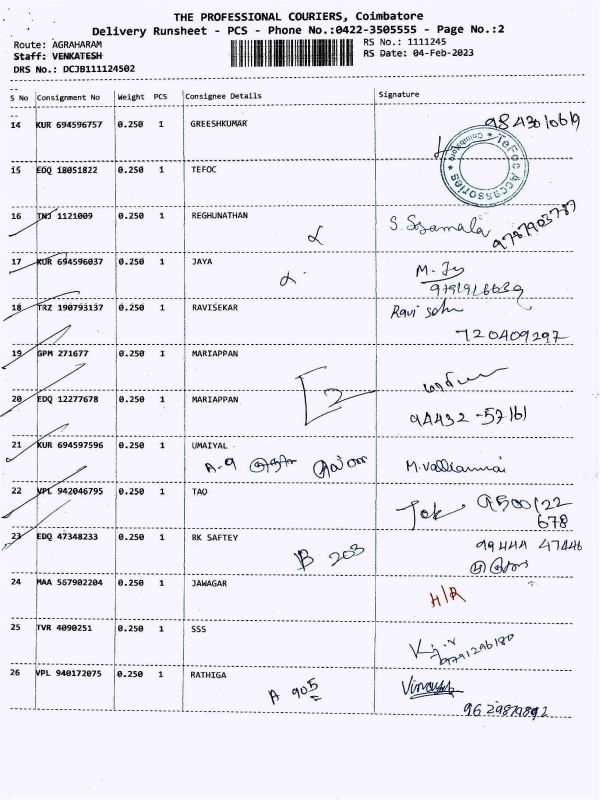 THE PROFESSIONAL COURIERS, Coimbatore
Delivery Runsheet - PCS - Phone No.:0422-3505555 - Page No.:2
Route: AGRAHARAM
RS No.: 1111245
Staff: VENKATESH
RS Date: 04-Feb-2023
DRS No.: DCJB111124502
S No Consignment No Weight PCS Consignee Details Signature
14 KUR 694596757 0.250 1 GREESHKUMAR
TeFoc Accessories * Coimbatore *
15 EDQ 18051822 0.250 1 TEFOC
16 TNJ 1121009 0.250 1 REGHUNATHAN
9787903787
17 KUR 694596037 0.250 1 JAYA
18 TRZ 190793137 0.250 1 RAVISEKAR
720409297
19 GPM 271677 0.250 1 MARIAPPAN
2
20 EDQ 12277678 0.250 1 MARIAPPAN
94432-57161
21 KUR 694597596 0.250 1 UMAIYAL
A-9
22 VPL 942046795 0.250 1 TAQ
9500122
678
23 EDQ 47348233 0.250 1 RK SAFTEY
B 203
99444 47446
24 MAA 567902204 0.250 1 JAWAGAR
H/R
25 TVR 4090251 0.250 1 SSS
9791296180
26 VPL 940172075 0.250 1 RATHIGA
A 905
9629879892